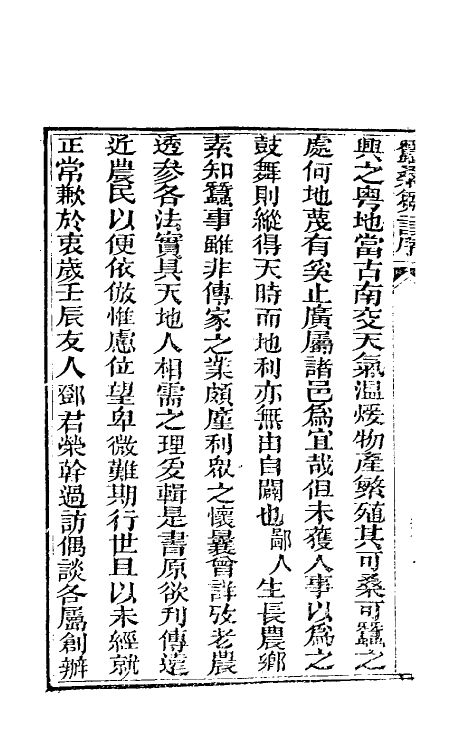 蠶桑輯要序
興之粤地當古南交天氣温煖物產繁殖其可桑可蠶之
處何地蔑有奚止廣屬諸邑爲宜哉但未獲人事以爲之
鼓舞則縱得天時而地利亦無由自闢也鄙人生長農鄉
素知蠶事雖非傳家之業頗廑利眾之懷曩曾詳攷老農
透參各法實具天地人相需之理爰輯是書原欲刊傳遠
近農民以便依倣惟慮位望卑微難期行世且以未經就
正常歉於衷歲壬辰友人鄧君榮幹過訪偶談各屬創辦